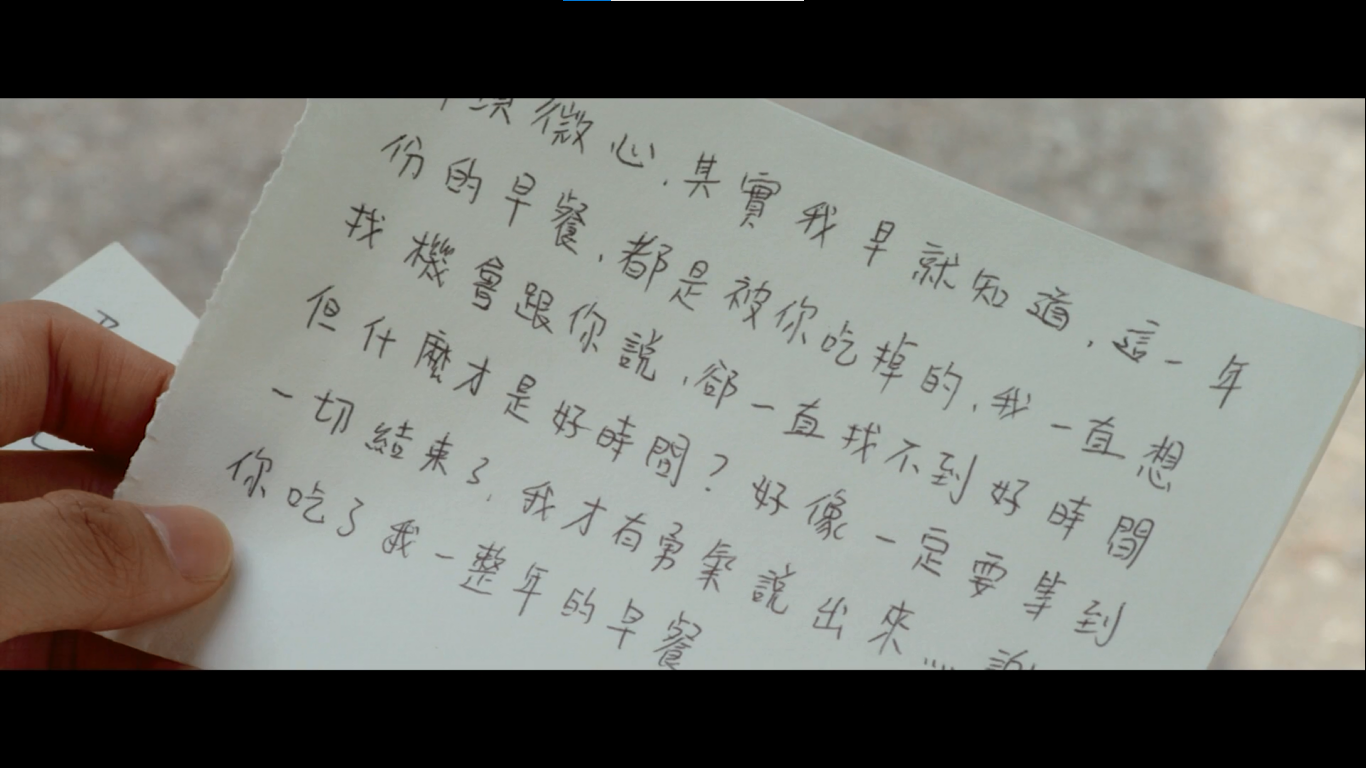 微心,其實我早就知道,這一年
份的早餐,都是被你吃掉的,我一直想
找機會跟你說,卻一直找不到好時間
但什麼才是好時間?好像一定要等到
一切結束了,我才有勇氣說出來......謝
你吃了我一整年的早餐